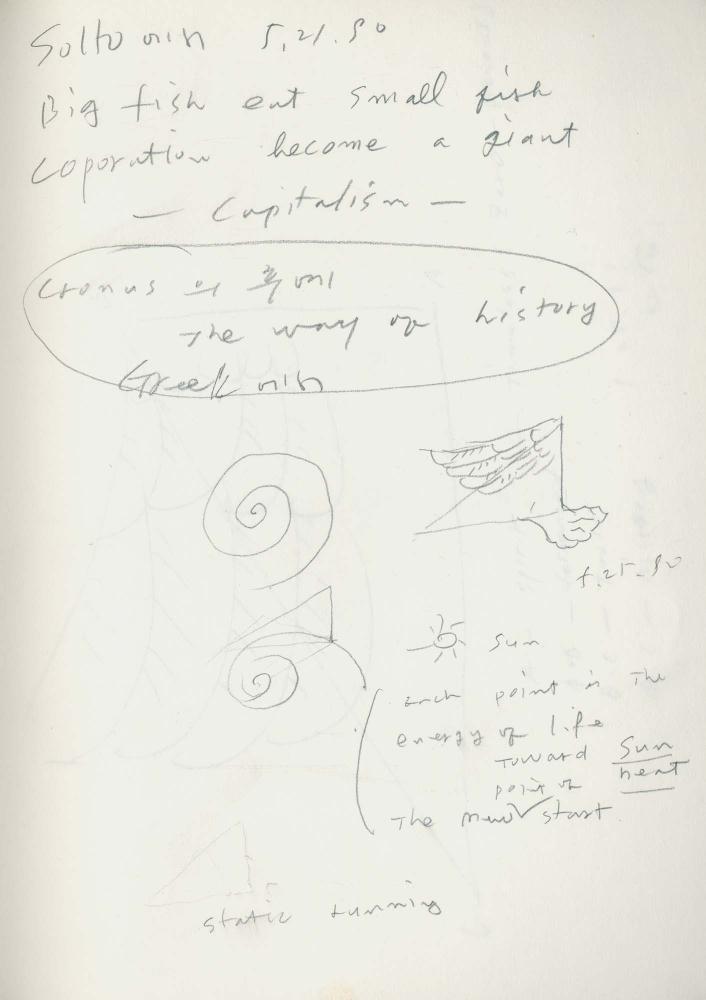 5.21.90
Big fish eat small fish
Coporation become a giant
— Capitalism —
Cronus 의 후예
The way of history
Greek
5.25-90
Sun
Each point is the
energy of life
toward Sun
heat
point of
The new start
static running